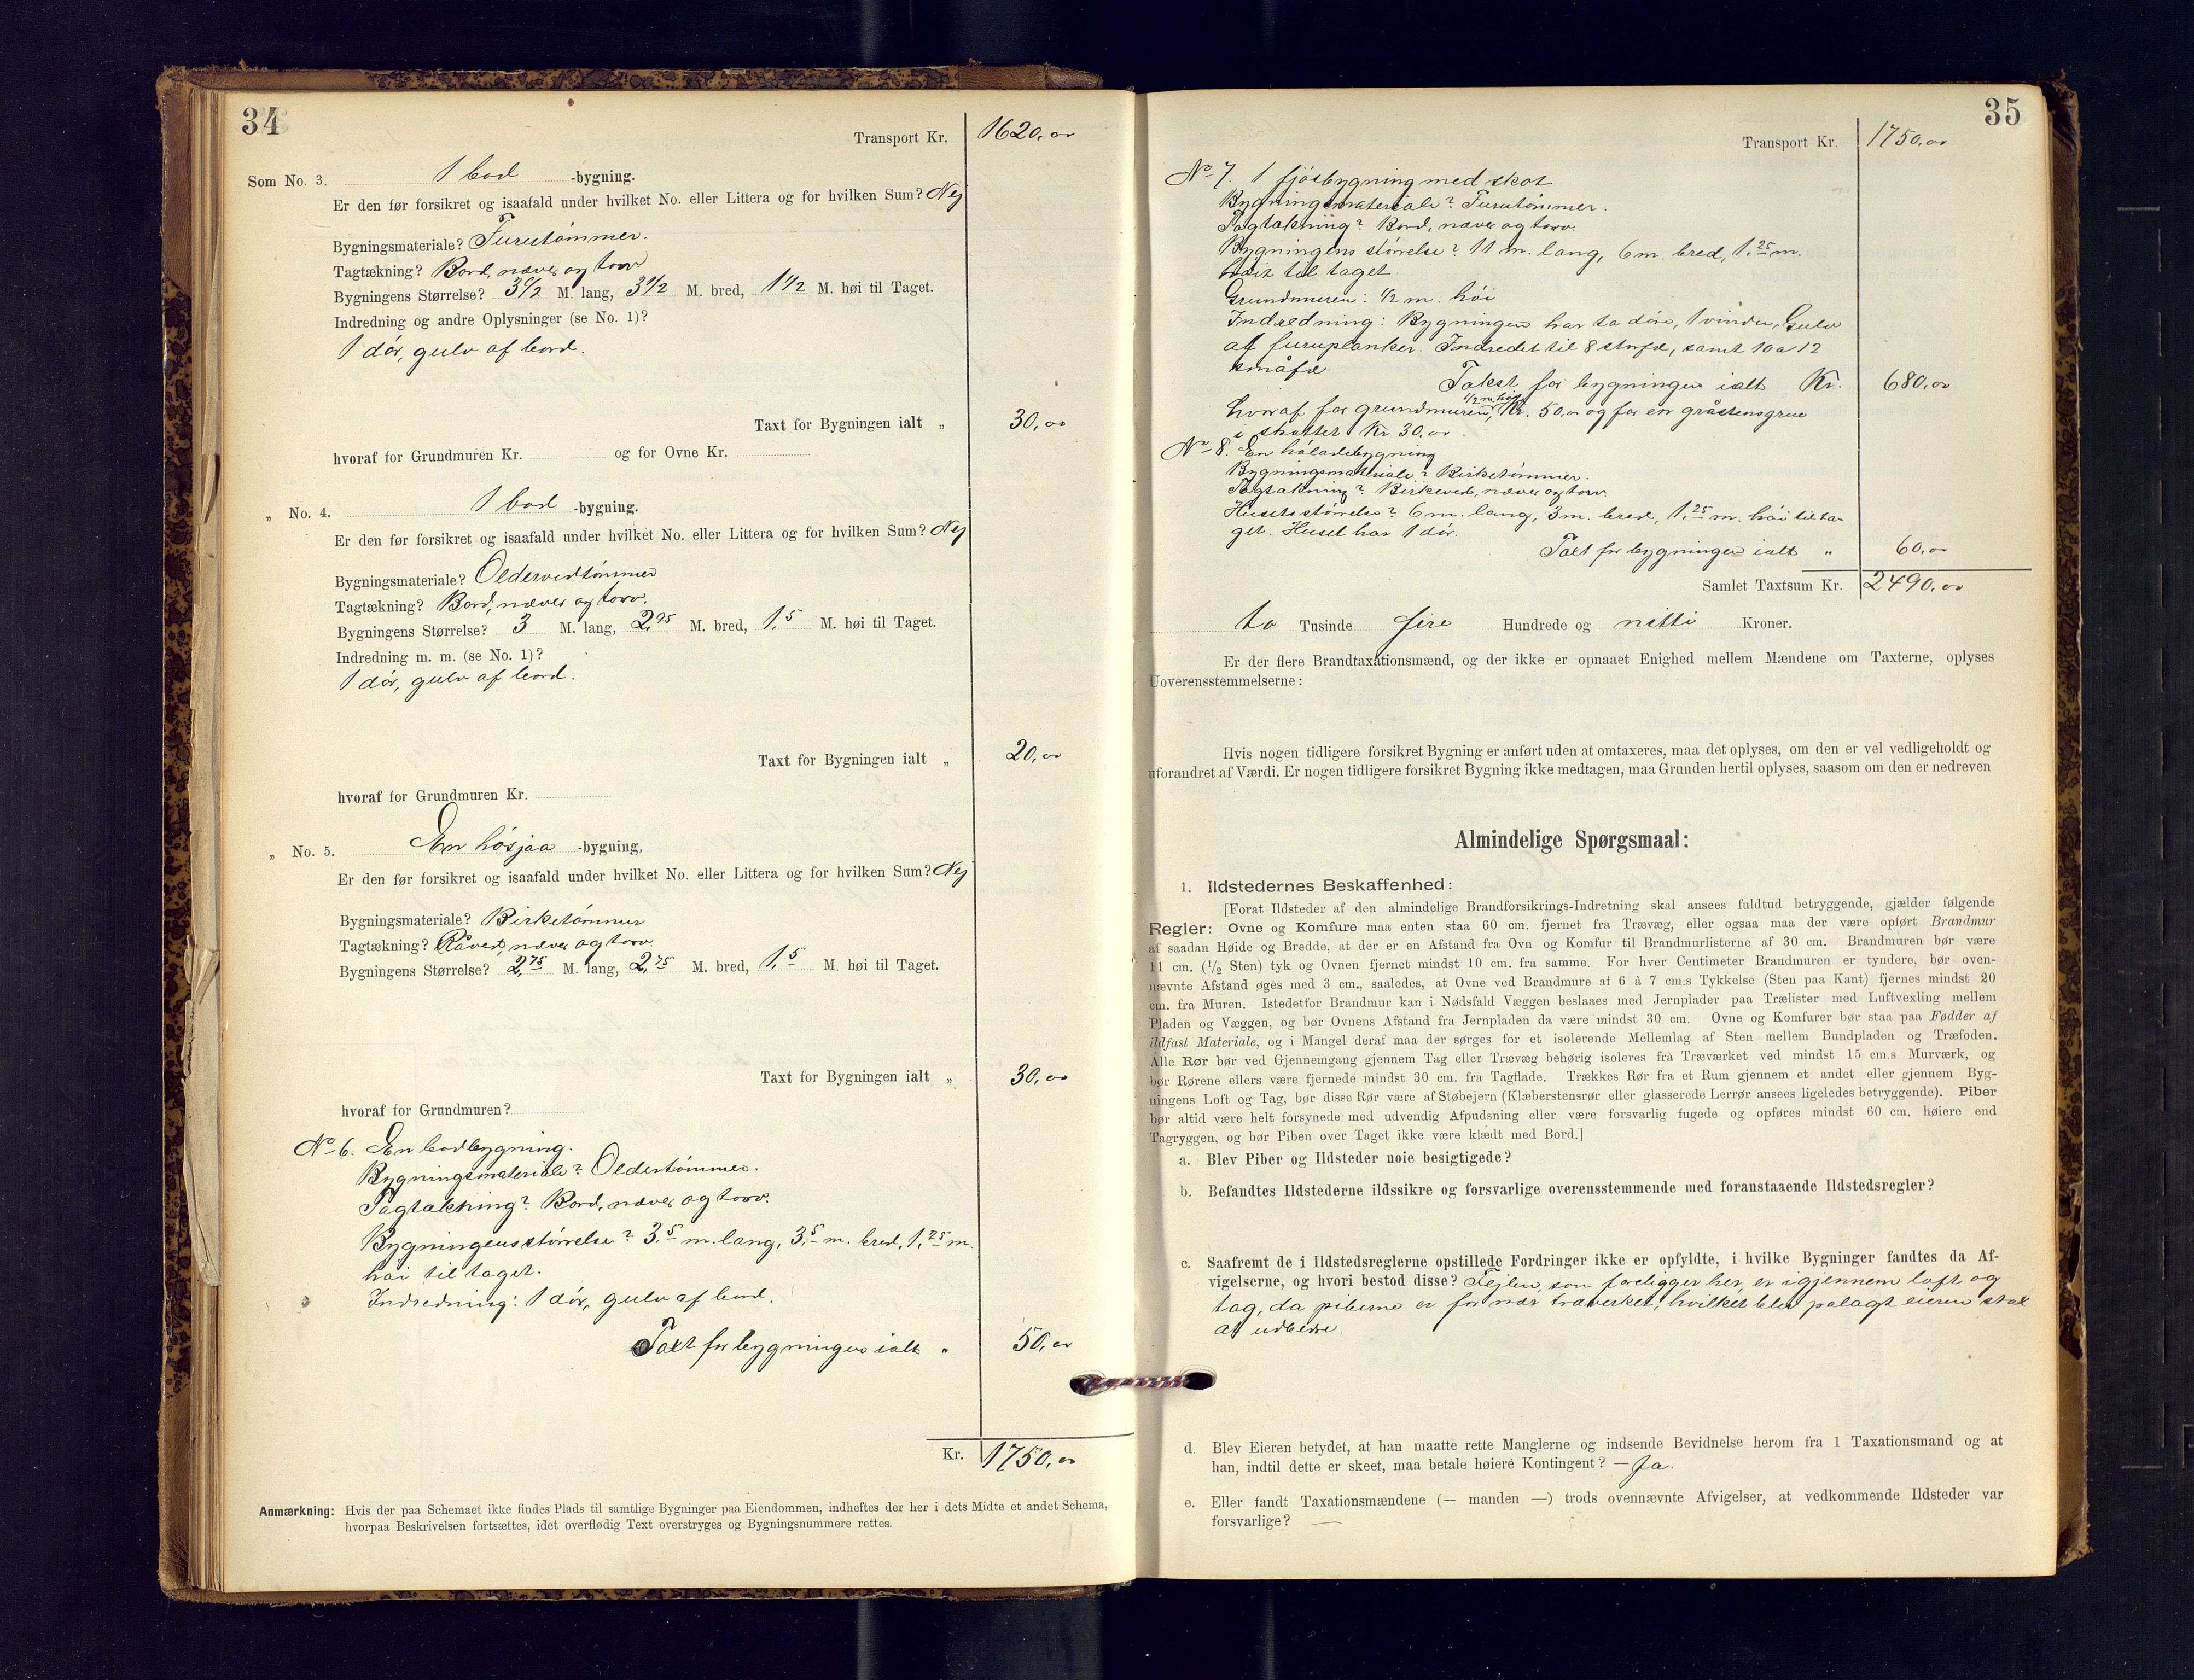 34
Transport Kr. 1620,00
Som No. 3. 1 bod -bygning.
Er den før forsikret og isaafald under hvilket No. eller Littera og for hvilken Sum? Nej
Bygningsmateriale? Furutømmer.
Tagtækning? Bord, næver og torv
Bygningens Størrelse? 3 1/2 M. lang, 3 1/2 M. bred, 1 1/2 M. høi til Taget.
Indredning og andre Oplysninger (se No. 1)?
1 dør, gulv af bord.
Taxt for Bygningen ialt „ 30,00
hvoraf for Grundmuren Kr. og for Ovne Kr.
„ No. 4. 1 bod -bygning.
Er den før forsikret og isaafald under hvilket No. eller Littera og for hvilken Sum? Nej
Bygningsmateriale? Oldervedtømmer
Tagtækning? Bord, næver og torv.
Bygningens Størrelse? 3 M. lang, 2,95 M. bred, 1,5 M. høi til Taget.
Indredning m. m. (se No. 1)?
1 dør, gulv af bord.
Taxt for Bygningen ialt „ 20,00
hvoraf for Grundmuren Kr.
„ No. 5. En høsjaa -bygning,
Er den før forsikret og isaafald under hvilket No. eller Littera og for hvilken Sum? Nej
Bygningsmateriale? Birketømmer
Tagtækning? Råved, næver og torv.
Bygningens Størrelse? 2,75 M. lang, 2,75 M. bred, 1,5 M. høi til Taget.
Taxt for Bygningen ialt „ 30,00
hvoraf for Grundmuren?
No 6. En bodbygning.
Bygningsmateriale? Oldertømmer.
Tagtækning? Bord, næver og torv.
Bygningens størrelse? 3,5 m. lang, 3,5 m. bred, 1,75 m.
høi til taget.
Indredning: 1 dør, gulv af bord.
Taxt for bygningen ialt „ 50,00
Kr. 1750,00
Anmærkning: Hvis der paa Schemaet ikke findes Plads til samtlige Bygninger paa Eiendommen, indheftes der her i dets Midte et andet Schema,
hvorpaa Beskrivelsen fortsættes, idet overflødig Text overstryges og Bygningsnummere rettes.
35
Transport Kr. 1750,00
No 7. 1 fjøsbygning med skot
Bygningsmateriale? Furutømmer.
Tagtækning? Bord, næver og torv.
Bygningens størrelse? 11 m. lang, 6 m. bred, 1,25 m.
høit til taget
Grundmuren: 1/2 m. høi
Indredning: Bygningen har to døre, 1 vindu, Gulv
af furuplanker. Indredet til 8 storfæ, samt 10 a 12
småfæ
Takst for bygningen ialt Kr. 680,00
hvoraf for grundmuren, 1/2 m. høi Kr. 50,00 og for en gråstensgrue
i skottet Kr 30,00.
No 8. En høladebygning
Bygningsmateriale? Birketømmer.
Tagtækning? Birkeved, næver og torv.
Husets størrelse? 6 m. lang, 3 m. bred, 1,25 m. høi til ta-
get. Huset har 1 dør.
Taxt for bygningen ialt „ 60,00
Samlet Taxtsum Kr. 2490,00
to Tusinde fire Hundrede og nitti Kroner.
Er der flere Brandtaxationsmænd, og der ikke er opnaaet Enighed mellem Mændene om Taxterne, oplyses
Uoverensstemmelserne:
Hvis nogen tidligere forsikret Bygning er anført uden at omtaxeres, maa det oplyses, om den er vel vedligeholdt og
uforandret af Værdi. Er nogen tidligere forsikret Bygning ikke medtagen, maa Grunden hertil oplyses, saasom om den er nedreven
Almindelige Spørgsmaal:
1. Ildstedernes Beskaffenhed:
[Forat Ildsteder af den almindelige Brandforsikrings-Indretning skal ansees fuldtud betryggende, gjælder følgende
Regler: Ovne og Komfure maa enten staa 60 cm. fjernet fra Trævæg, eller ogsaa maa der være opført Brandmur
af saadan Høide og Bredde, at der er en Afstand fra Ovn og Komfur til Brandmurlisterne af 30 cm. Brandmuren bør være
11 cm. (1/2 Sten) tyk og Ovnen fjernet mindst 10 cm. fra samme. For hver Centimeter Brandmuren er tyndere, bør oven-
nævnte Afstand øges med 3 cm., saaledes, at Ovne ved Brandmure af 6 à 7 cm.s Tykkelse (Sten paa Kant) fjernes mindst 20
cm. fra Muren. Istedetfor Brandmur kan i Nødsfald Væggen beslaaes med Jernplader paa Trælister med Luftvexling mellem
Pladen og Væggen, og bør Ovnens Afstand fra Jernpladen da være mindst 30 cm. Ovne og Komfurer bør staa paa Fødder af
ildfast Materiale, og i Mangel deraf maa der sørges for et isolerende Mellemlag af Sten mellem Bundpladen og Træfoden.
Alle Rør bør ved Gjennemgang gjennem Tag eller Trævæg behørig isoleres fra Træværket ved mindst 15 cm.s Murværk, og
bør Rørene ellers være fjernede mindst 30 cm. fra Tagflade. Trækkes Rør fra et Rum gjennem et andet eller gjennem Byg-
ningens Loft og Tag, bør disse Rør være af Støbejern (Klæberstensrør eller glasserede Lerrør ansees ligeledes betryggende). Piber
bør altid være helt forsynede med udvendig Afpudsning eller være forsvarlig fugede og opføres mindst 60 cm. høiere end
Tagryggen, og bør Piben over Taget ikke være klædt med Bord.]
a. Blev Piber og Ildsteder nøie besigtigede?
b. Befandtes Ildstederne ildssikre og forsvarlige overensstemmende med foranstaaende Ildstedsregler?
c. Saafremt de i Ildstedsreglerne opstillede Fordringer ikke er opfyldte, i hvilke Bygninger fandtes da Af-
vigelserne, og hvori bestod disse? Fejlen, som foreligger her, er igjennem loft og
tag, da piberne er for nær træverket, hvilket blev pålagt eieren straks
at udbedre.
d. Blev Eieren betydet, at han maatte rette Manglerne og indsende Bevidnelse herom fra 1 Taxationsmand og at
han, indtil dette er skeet, maa betale høiere Kontingent? — Ja.
e. Eller fandt Taxationsmændene (— manden —) trods ovennævnte Afvigelser, at vedkommende Ildsteder var
forsvarlige? —